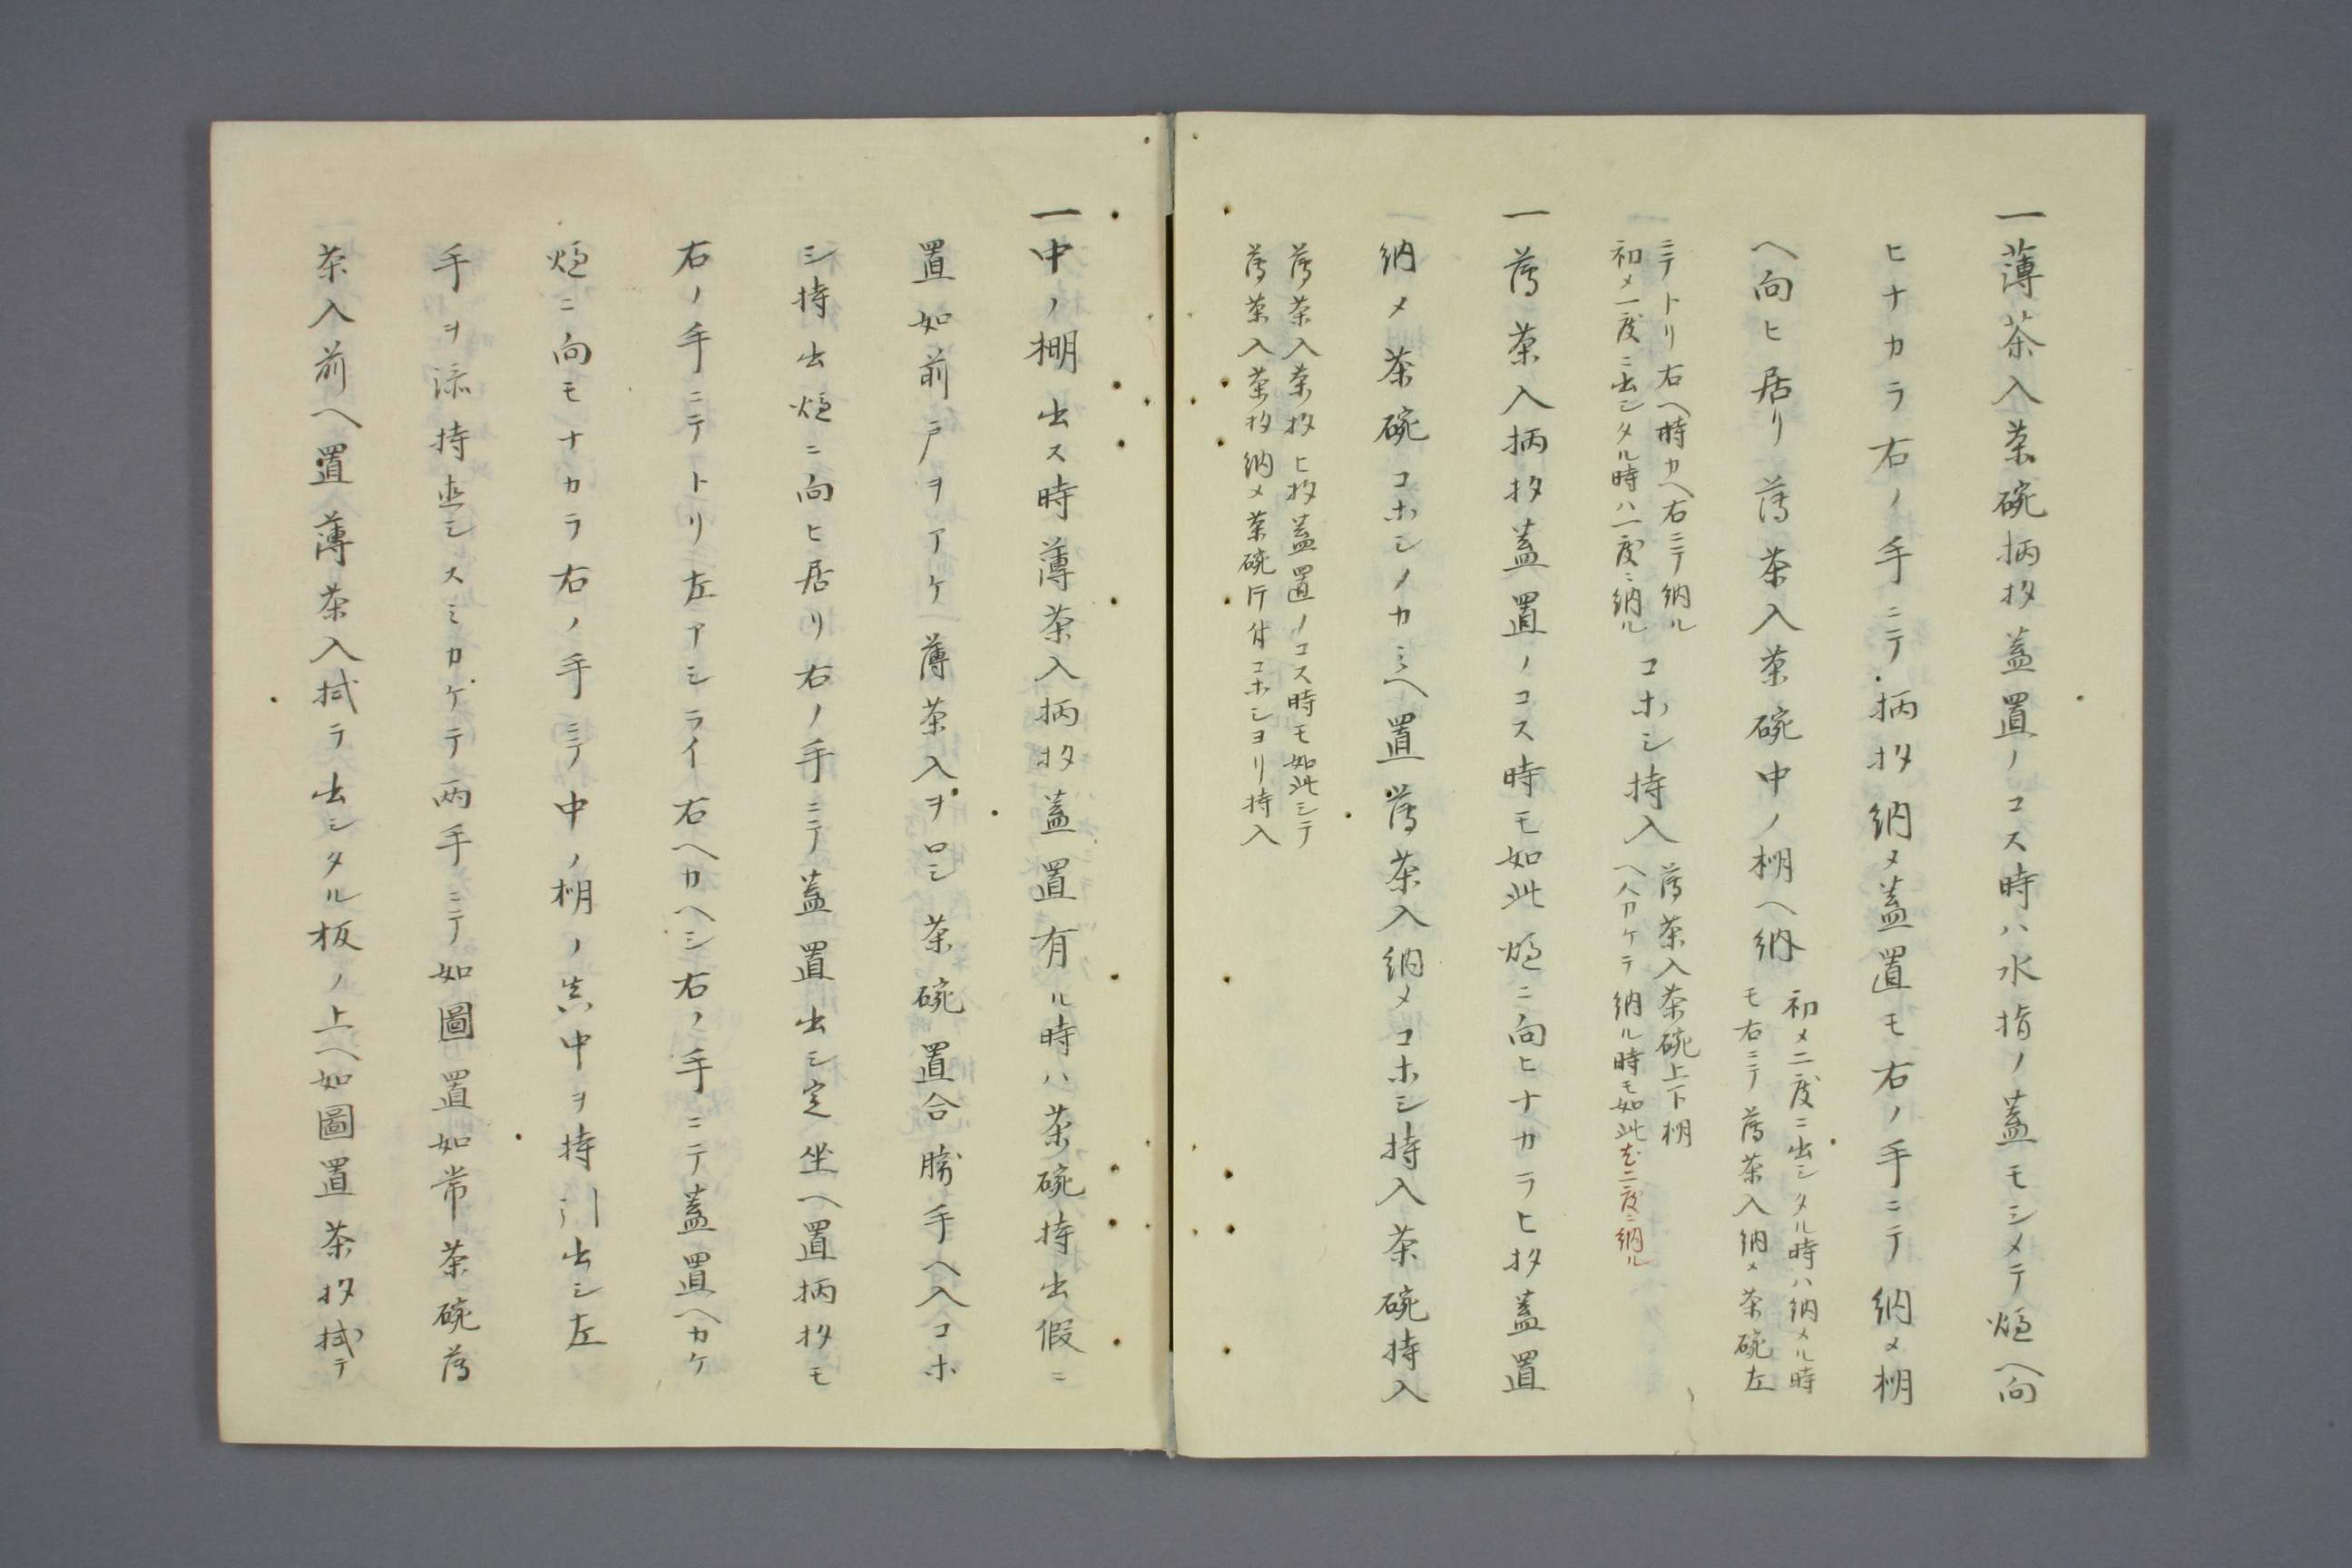 一薄茶入茶碗柄杓蓋置ノコス時ハ水指ノ蓋モシメテ爐へ向
ヒナカラ右ノ手ニテ柄杓納メ蓋置モ右ノ手ニテ納メ棚
へ向ヒ居リ薄茶入茶碗中ノ棚へ納
初メ二度ニ出シタル時ハ納メル時
モ右ニテ薄茶入納メ茶碗左
ニテトリ右へ時カヘ右ニテ納ル
初メ一度ニ出シタル時ハ一度ニ納ル
コホシ持入
薄茶入茶碗上下棚
へ分ケテ納ル時モ如此尤二度ニ納ル
一薄茶入柄杓蓋置ノコス時モ如此爐ニ向ヒナカラヒ杓蓋置
納メ茶碗コホシノカミへ置薄茶入納メコホシ持入茶碗持入
薄茶入茶杓ヒ杓蓋置ノコス時モ如此シテ
薄茶入茶杓納メ茶碗片付コホシヨリ持入
一中ノ棚出ス時薄茶入柄杓蓋置有ル時ハ茶碗持出假ニ
置如前戸ヲアケ薄茶入ヲロシ茶碗置合勝手へ入コホ
シ持出爐ニ向ヒ居リ右ノ手ニテ蓋置出シ定坐へ置柄杓モ
右ノ手ニテトリ左アシライ右へカヘシ右ノ手ニテ蓋置へカケ
爐ニ向モナカラ右ノ手ニテ中ノ棚ノ真中ヲ持引出シ左
手ヲ添持出シスミカケテ両手ニテ如圖置如常茶碗薄
茶入前へ置薄茶入拭テ出シタル板ノ上へ如圖置茶杓拭テ